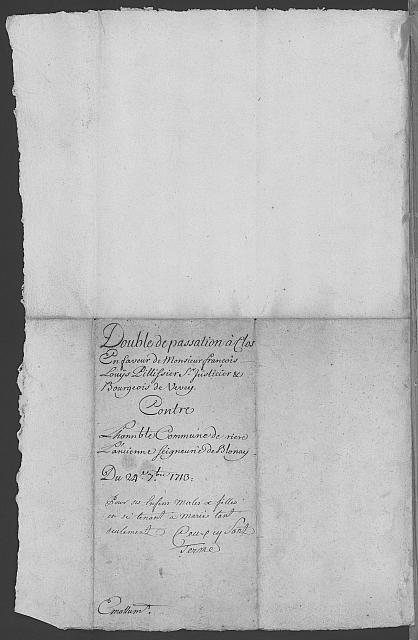 Double de passation à Clos
En faveur de Monsieur françois
Louÿs Pillissier Sr Justicier &
Bourgeois de Vevey
Contre
L'honnble Commune de riere
L'anvienne Seigneurie de Blonay
Du 24e 7bre 1713.
Pour ses enfans males & filles
en se tenant à marié tant
seulement
Emollumt.